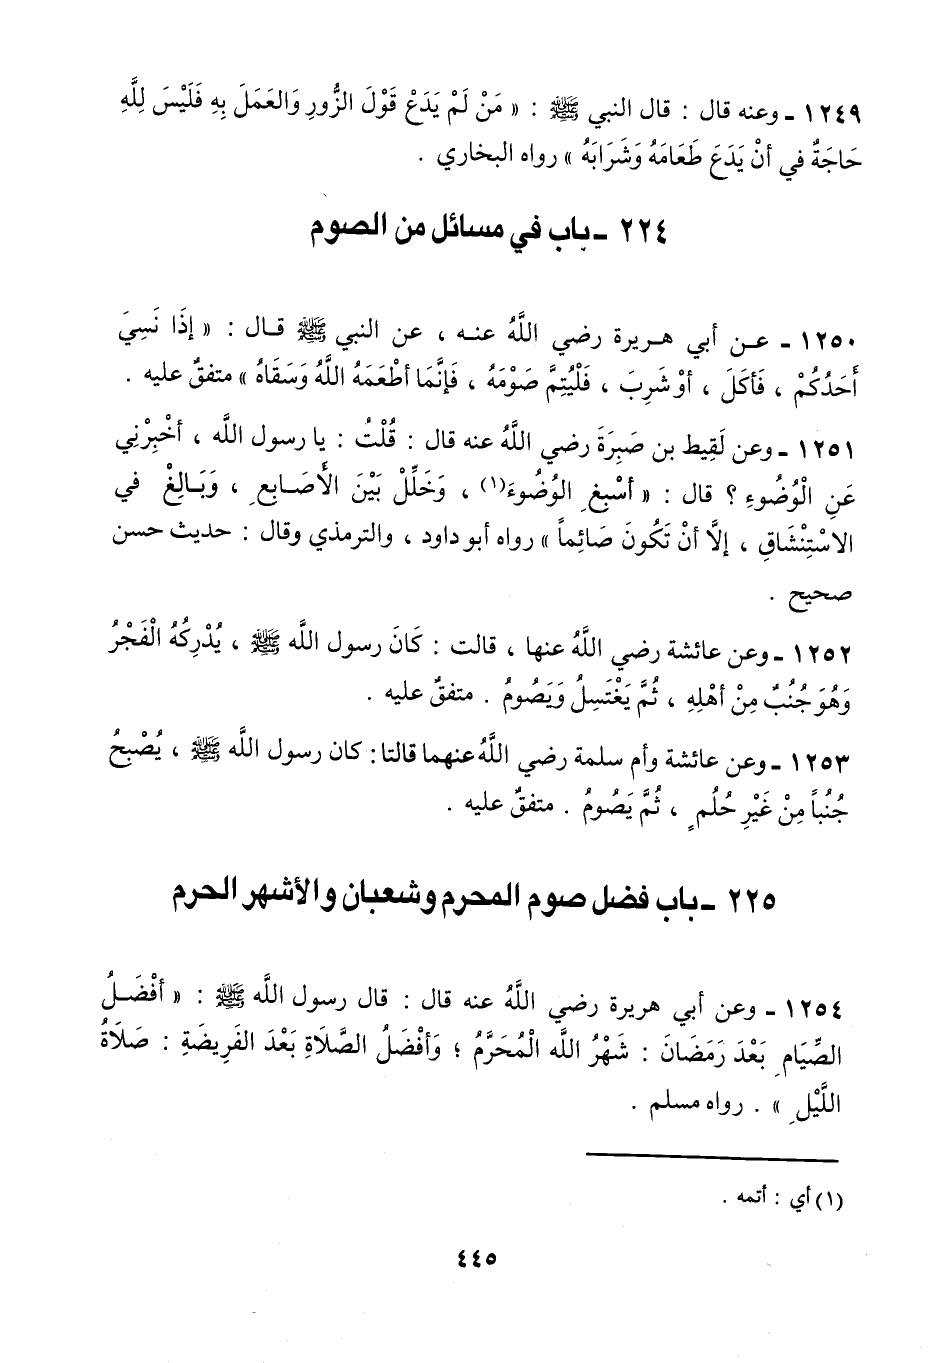 ١٢٤٩ ـ وعنه قال : قال النبي ﷺ : « مَنْ لَمْ يَدَعْ قَوْلَ الزُّورِ وَالعَمَلَ بِهِ فَلَيْسَ لِلَّهِ
حَاجَةٌ في أنْ يَدَعَ طَعَامَهُ وَشَرَابَهُ » رواه البخاري .
٢٢٤ ـ باب في مسائل من الصوم
١٢٥٠ ـ عـن أبي هـريرة رضي اللَّهُ عنـه ، عن النبي ﷺ قـال : « إذَا نَسِيَ
أَحَدُكُمْ ، فَأكَلَ ، أوْ شَرِبَ ، فَلْيُتِمَّ صَوْمَهُ ، فَإنَّمَا أطْعَمَهُ اللَّهُ وَسَقَاهُ » متفقٌ عليه .
١٢٥١ ـ وعن لَقِيط بن صَبِرَةَ رضي اللَّهُ عنه قال : قُلْتُ : يا رسول اللَّه ، أخْبِرْنِي
عَنِ الْوُضُوءِ ؟ قال : « أسْبِغِ الوُضُوءَ(١) ، وَخَلِّلْ بَيْنَ الأَصَـابِعِ ، وَبَـالِغْ في
الاسْتِنْشَاقِ ، إلَّا أنْ تَكُونَ صَائِماً » رواه أبو داود ، والترمذي وقال : حديث حسن
صحيح .
١٢٥٢ ـ وعن عائشة رضي اللَّهُ عنها ، قالت : كَانَ رسول اللَّه ﷺ ، يُدْرِكُهُ الْفَجْرُ
وَهُوَ جُنُبٌ مِنْ أهْلِهِ ، ثُمَّ يَغْتَسِلُ وَيَصُومُ . متفقٌ عليه .
١٢٥٣ ـ وعن عائشة وأم سلمة رضي اللَّهُ عنهما قالتا : كان رسول اللَّه ﷺ ، يُصْبِحُ
جُنُباً مِنْ غَيْرِ حُلُمٍ ، ثُمَّ يَصُومُ . متفقٌ عليه .
٢٢٥ ـ باب فضل صوم المحرم وشعبان والأشهر الحرم
١٢٥٤ ـ وعن أبي هريرة رضي اللَّهُ عنه قال : قال رسول اللَّه ﷺ : « أفْضَـلُ
الصِّيَامِ بَعْدَ رَمَضَانَ : شَهْرُ اللَّه الْمُحَرَّمُ ؛ وَأفْضَلُ الصَّلَاةِ بَعْدَ الفَرِيضَةِ : صَلَاةُ
اللَّيْلِ » . رواه مسلم .
(١) أي : أتمه .
٤٤٥